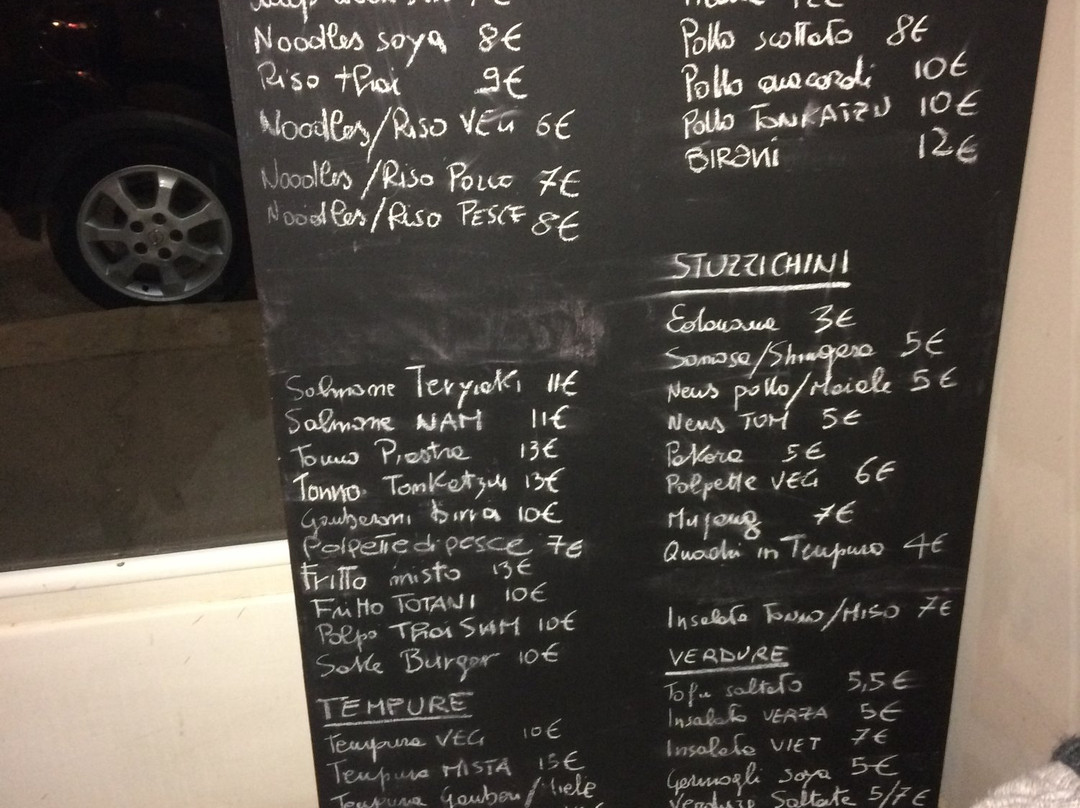 Noodles soya 8€
Riso thai 9€
Noodles/Riso VEG 6€
Noodles/Riso POLLO 7€
Noodles/Riso PESCE 8€
Salmone Teryiaki 11€
Salmone NAM 11€
Tonno Piastra 13€
Tonno Tonkatzu 13€
Gamberoni birra 10€
Polpette di pesce 7€
Fritto misto 13€
Fritto TOTANI 10€
Polpo Thai SIAM 10€
Sake Burger 10€
TEMPURE
Tempura VEG 10€
Tempura MISTA 15€
Tempura Gamberi/
12€
Pollo scottato 8€
Pollo anacardi 10€
Pollo TONKATZU 10€
BIRANI 12€
STUZZICHINI
Edamame 3€
Samosa/Shingara 5€
Nems pollo/Maiale 5€
Nems TOM 5€
Pakora 5€
Polpette VEG 6€
7€
Quadri in Tempura 4€
Insalata Tonno/MISO 7€
VERDURE
Tofu saltato 5,5€
Insalata VERZA 5€
Insalata VIET 7€
Germogli soya 5€
Verdure Saltate 5/7€